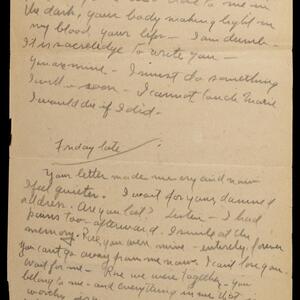 the dark, your body making light in
my blood, your lips – I am dumb –
It is sacreledge to write you –
You are mine – I must do something
I will – soon – I cannot touch Marie
I would die if I did.
Friday late
Your letter made me cry and now
I feel quieter. I wait for your damned
address. Are you lost? Listen – I had
pains too – afterward. I smile at the
memory. you were mine – entirely, forever
you can't go away from me now. I can't lose you.
Wait for me – we were together – you
belong to me – and everything in me that